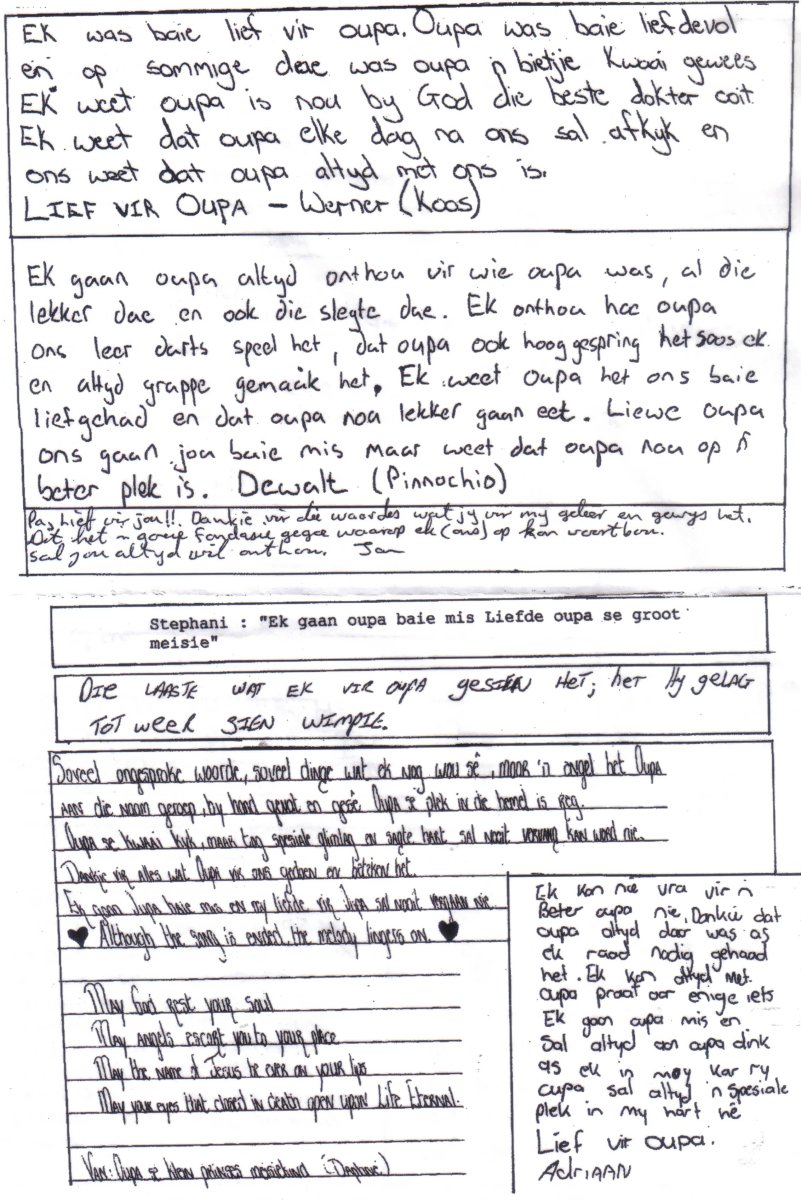 Ek was baie lief vir oupa. Oupa was baie liefdevol
en op sommige dae was oupa 'n bietjie kwaai gewees
Ek weet oupa is nou by God die beste dokter ooit
Ek weet dat oupa elke dag na ons sal afkyk en
ons weet dat oupa altyd met ons is.
LIEF VIR OUPA – Werner (Koos)
Ek gaan oupa altyd onthou vir wie oupa was, al die
lekker dae en ook die slegte dae. Ek onthou hoe oupa
ons leer darts speel het, dat oupa ook hoog gespring het soos ek
en altyd grappe gemaak het. Ek weet oupa het ons baie
liefgehad en dat oupa nou lekker gaan eet. Liewe oupa
ons gaan jou baie mis maar weet dat oupa nou op 'n
beter plek is. Dewalt (Pinnochio)
Pa, Lief vir jou!!. Dankie vir die waardes wat jy vir my geleer en gewys het.
Dit het 'n goeie fondasie gegee waarop ek (ons) op kan voortbou.
sal jou altyd wil onthou. Jan
Stephani : "Ek gaan oupa baie mis Liefde oupa se groot
meisie"
DIE LAASTE WAT EK VIR OUPA GESIEN HET; HET HY GELAG
TOT WEER SIEN WIMPIE.
Soveel ongesproke woorde, soveel dinge wat ek nog wou sê, maar 'n engel het Oupa
aan die naam geroep, by hand gevat en gesê Oupa se plek in die hemel is reg.
Oupa se kwaai kyk, maar tog spesiale glimlag en sagte hart sal nooit vervang kan word nie.
Dankie vir alles wat Oupa vir ons gedoen en beteken het.
Ek gaan Oupa baie mis en my liefde vir Oupa sal nooit vergaan nie.
♥ Although the song is ended, the melody lingers on. ♥
May God rest your soul
May angels escort you to your place
May the name of Jesus be ever on your lips
May your eyes that closed in death open upon Life Eternal.
Van: Oupa se klein prinses meisiekind (Daphne)
Ek kon nie vra vir 'n
Beter oupa nie. Dankie dat
oupa altyd daar was as
ek raad nodig gehaad
het. Ek kon altyd met
oupa praat oor enige iets
Ek gaan oupa mis en
sal altyd aan oupa dink
as ek in my kar ry
oupa sal altyd 'n spesiale
plek in my hart hê
Lief vir oupa.
ADRIAAN